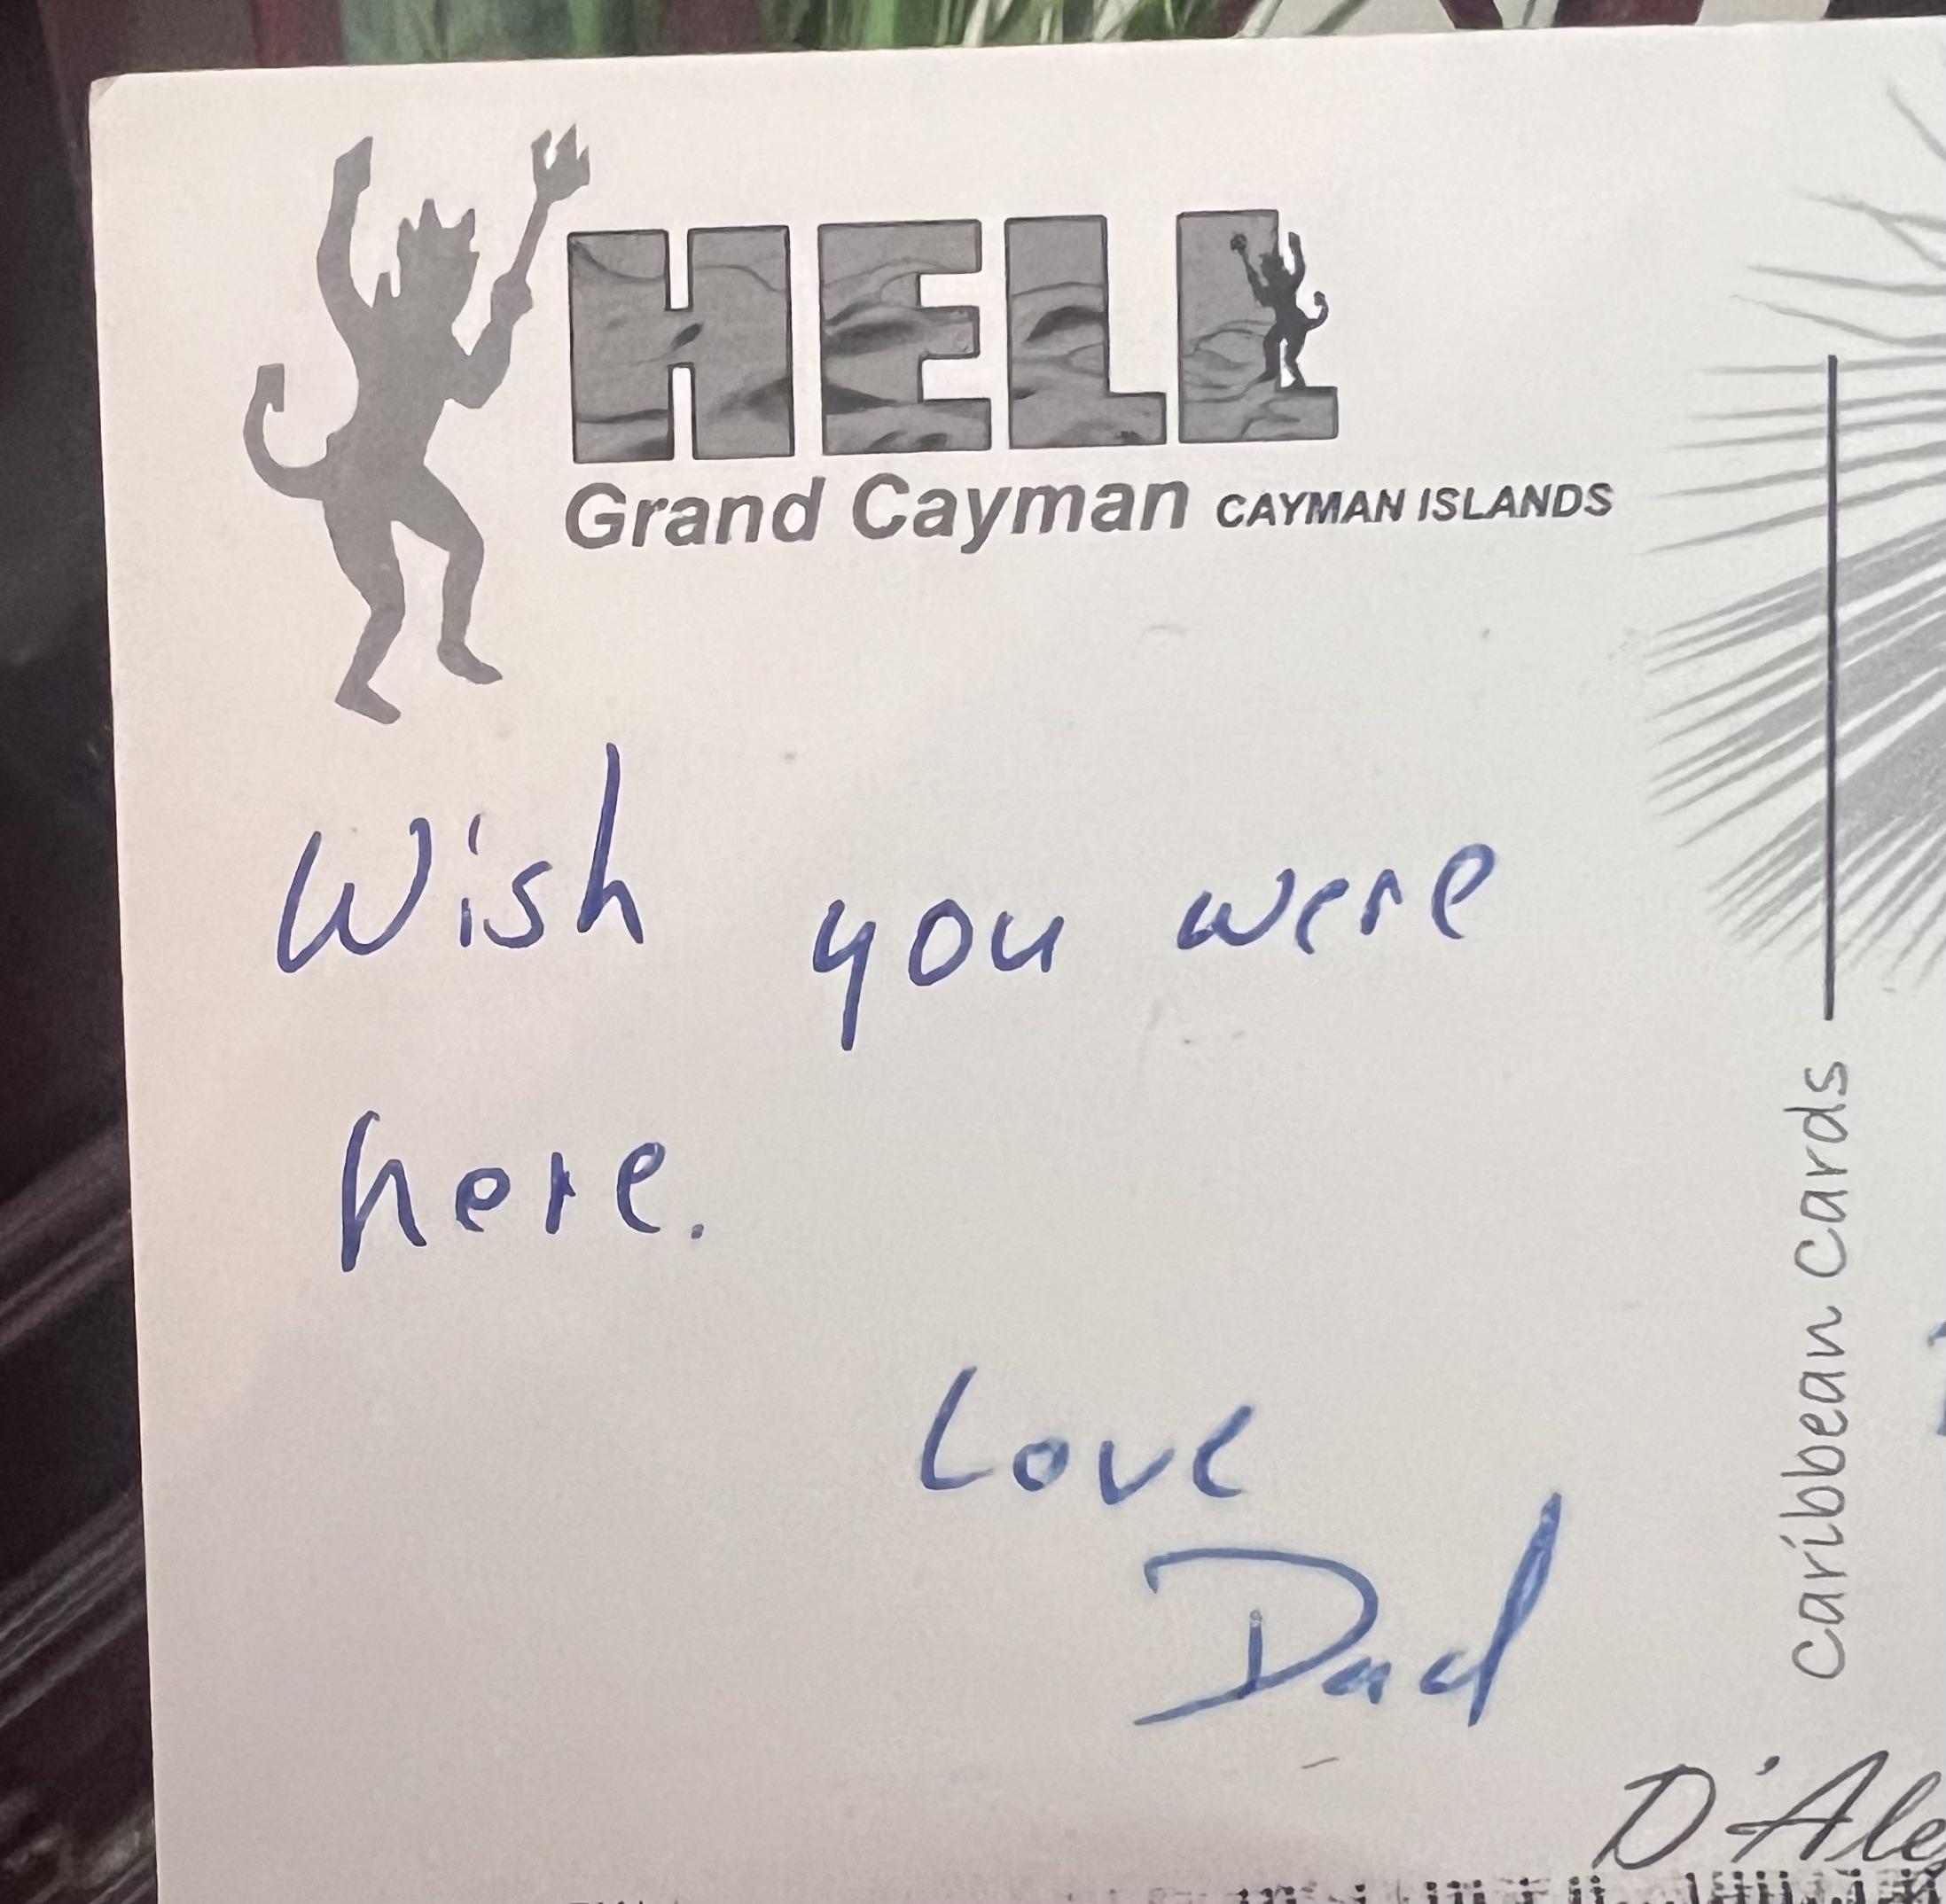 HELL
Grand Cayman CAYMAN ISLANDS
Wish you were
here.
Love
Dad
Caribbean Cards